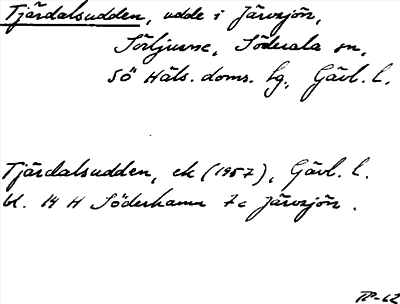 Tjärdalsudden, udde i Järvsjön,
Sörljusne, Söderala sn,
Sö Häls. doms. lg., Gävl. l.
Tjärdalsudden, ek (1957), Gävl. l.
bl. 14 H Söderhamn 7c Järvsjön.
TP-62